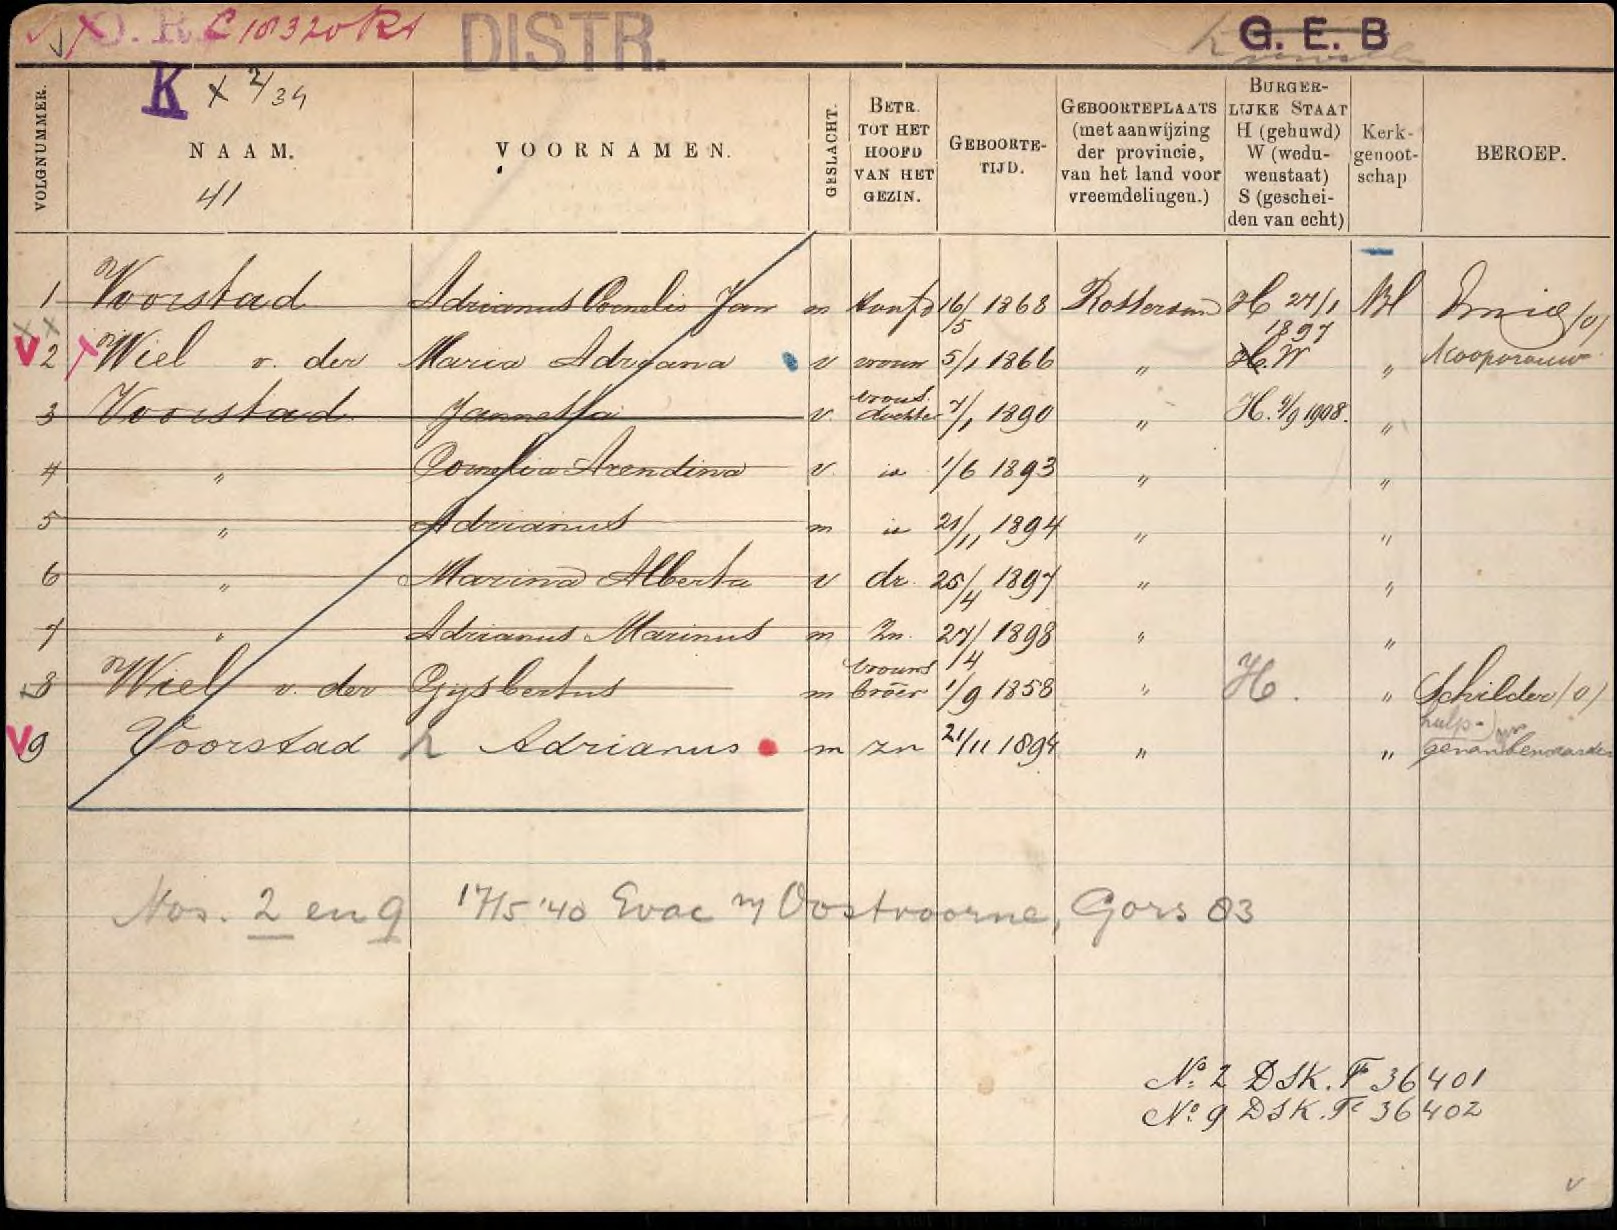 C 18320 Rt DISTR. G. E. B
K x 2/34
VOLGNUMMER. NAAM. VOORNAMEN. GESLACHT. BETR. TOT HET HOOFD VAN HET GEZIN. GEBOORTE-TIJD. GEBOORTEPLAATS (met aanwijzing der provincie, van het land voor vreemdelingen.) BURGER-LIJKE STAAT H (gehuwd) W (wedu-wenstaat) S (geschei-den van echt) Kerk-genoot-schap BEROEP.
41
1 Voorstad Adrianus Cornelis Jan m hoofd 16/5 1868 Rotterdam H 27/1 1897 NH Smid (o)
2 Wiel v. der Maria Adriana v vrouw 5/1 1866 " H. W " Koopvrouw
3 Voorstad Jannetta v. vrouws dochter 7/1 1890 " H. 9/9 1908. "
4 " Cornelia Arendina v. id 1/6 1893 " "
5 " Adrianus m id 21/11 1894 " "
6 " Marina Alberta v dr. 25/4 1897 " "
7 " Adrianus Marinus m Zn. 27/4 1898 " "
8 Wiel v. der Gijsbertus m vrouws broer 1/9 1858 " H. " Schilder (o)
9 Voorstad Adrianus m zn 21/11 1894 " " hulp-gevangenbewaarder
Nos. 2 en 9 17/5 '40 Evac n/ Oostvoorne, Gors 83
No. 2 DSK. F 36401
No. 9 DSK. F 36402